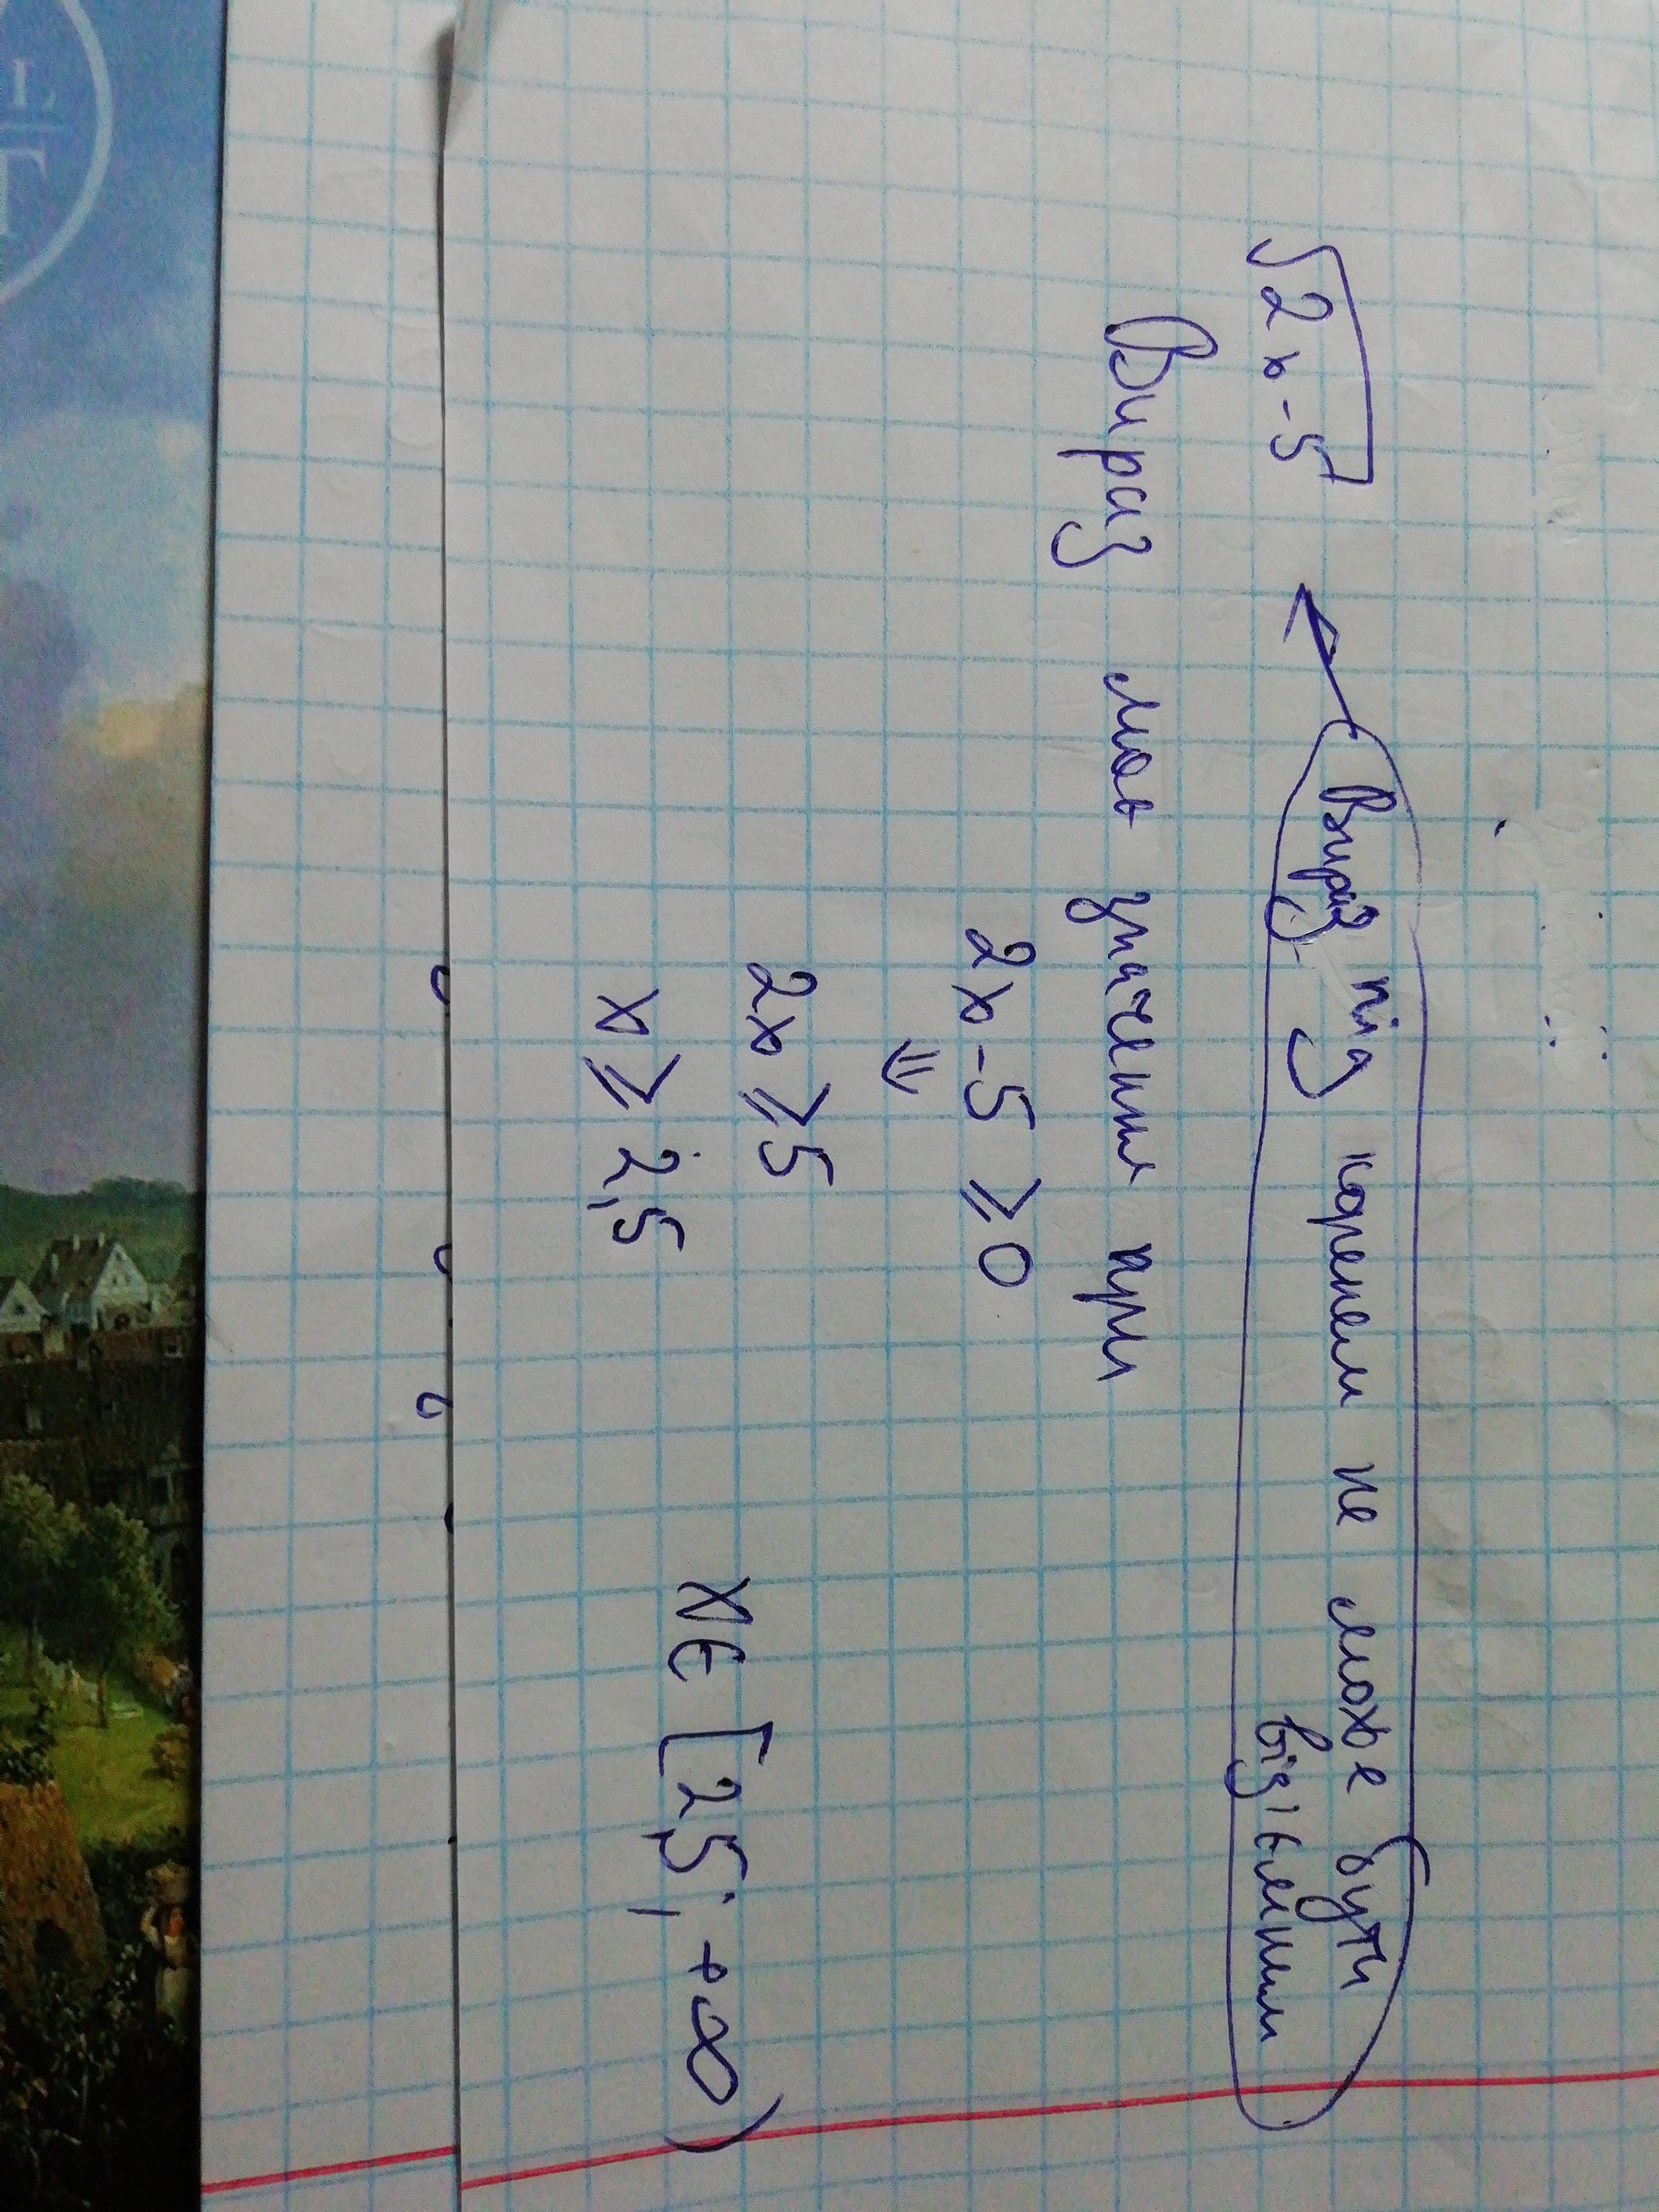 √2x-5
Вираз під коренем не може бути
від'ємним
Вираз має значення при
2x-5 ≥ 0
⇓
2x ≥ 5
x ≥ 2,5
x ∈ [2,5; +∞)